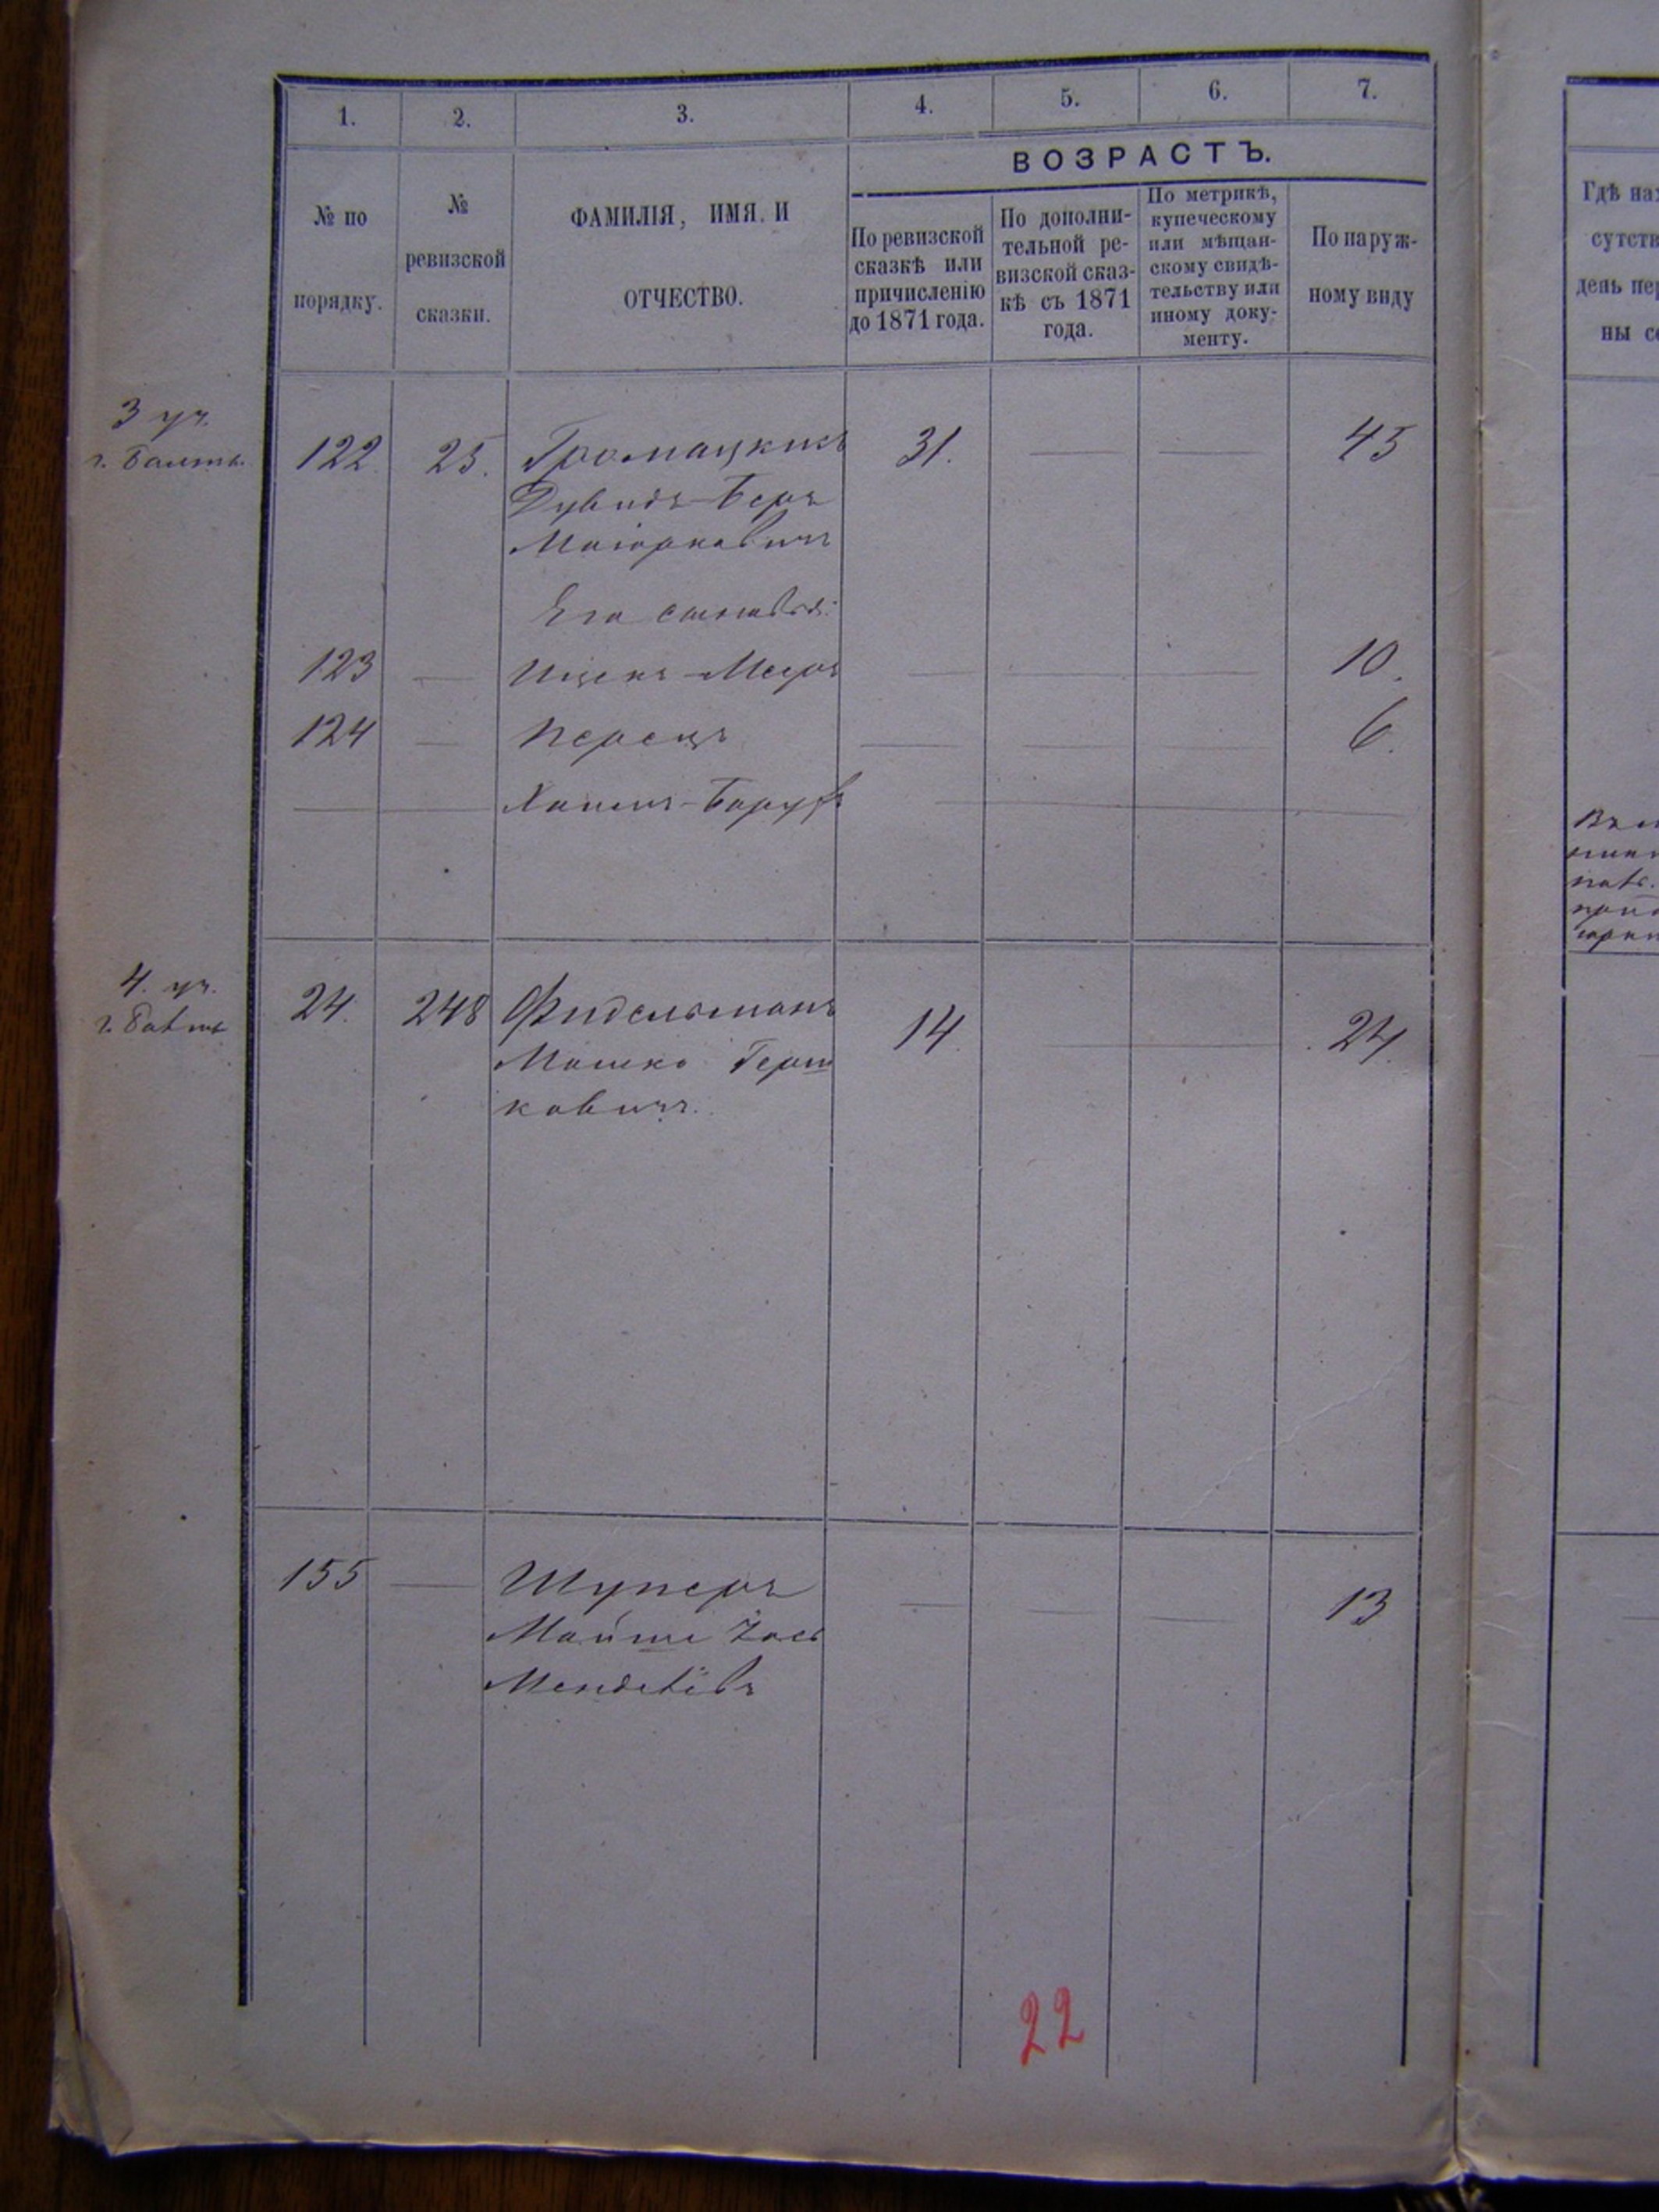 1. 2. 3. 4. 5. 6. 7.
ВОЗРАСТЪ.
№ по
порядку.
№
ревизской
сказки.
ФАМИЛІЯ, ИМЯ, И
ОТЧЕСТВО.
По ревизской
сказкѣ или
причисленію
до 1871 года.
По дополни-
тельной ре-
визской сказ-
кѣ съ 1871
года.
По метрикѣ,
купеческому
или мѣщан-
скому свидѣ-
тельству или
иному доку-
менту.
По наруж-
ному виду
3 уч.
г. Балты
122. 25. Громацкихъ 31. — — 45
Дувидъ-Беръ
Маіорковичъ
Его сыновья:
123 — Ицекъ-Мееръ — — — 10.
124 — Перецъ — — — 6.
— — Хаимъ-Барухъ — — — —
4. уч.
г. Балты
24. 248 Фидельманъ 14. — — 24.
Мошко Герш
ковичъ.
155 — Шуперъ — — — 13
Мойше Іось
Менделевъ
22
Гдѣ нах
сутств
день пер
ны со